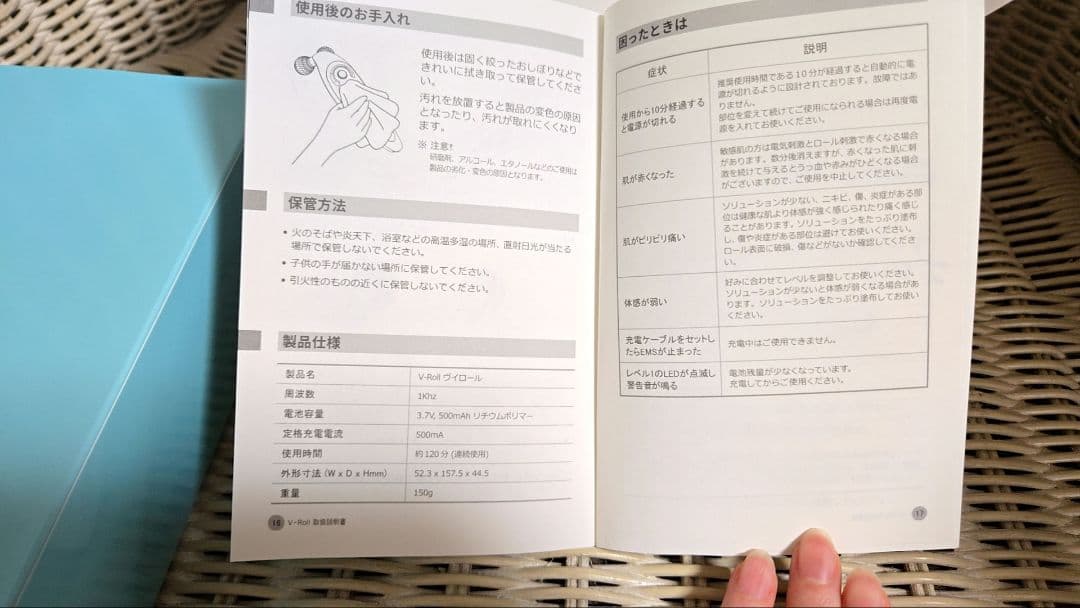 使用後のお手入れ
使用後は固く絞ったおしぼりなどで
きれいに拭き取って保管してくださ
い。
汚れを放置すると製品の変色の原因
となったり、汚れが取れにくくなり
ます。
※ 注意!
研磨剤、アルコール、エタノールなどのご使用は
製品の劣化・変色の原因となります。
保管方法
• 火のそばや炎天下、浴室などの高温多湿の場所、直射日光が当たる
場所で保管しないでください。
• 子供の手が届かない場所に保管してください。
• 引火性のものの近くに保管しないでください。
製品仕様
製品名 V-Roll ヴイロール
周波数 1Khz
電池容量 3.7V, 500mAh リチウムポリマー
定格充電電流 500mA
使用時間 約120分 (連続使用)
外形寸法 (W x D x Hmm) 52.3 x 157.5 x 44.5
重量 150g
16 V-Roll 取扱説明書
困ったときは
症状 説明
使用から10分経過する
と電源が切れる
推奨使用時間である10分が経過すると自動的に電
源が切れるように設計されております。故障ではあ
りません。
部位を変えて続けてご使用になられる場合は再度電
源を入れてお使いください。
肌が赤くなった
敏感肌の方は電気刺激とロール刺激で赤くなる場合
があります。数分後消えますが、赤くなった肌に刺
激を続けて与えるとうっ血や赤みがひどくなる場合
がございますので、ご使用を中止してください。
肌がピリピリ痛い
ソリューションが少ない、ニキビ、傷、炎症がある部
位は健康な肌より体感が強く感じられたり痛く感じ
ることがあります。ソリューションをたっぷり塗布
し、傷や炎症がある部位は避けてお使いください。
ロール表面に破損、傷などがないか確認してくださ
い。
体感が弱い
好みに合わせてレベルを調整してお使いください。
ソリューションが少ないと体感が弱くなる場合があ
ります。ソリューションをたっぷり塗布してお使い
ください。
充電ケーブルをセットし
たらEMSが止まった
充電中はご使用できません。
レベル1のLEDが点滅し
警告音が鳴る
電池残量が少なくなっています。
充電してからご使用ください。
17